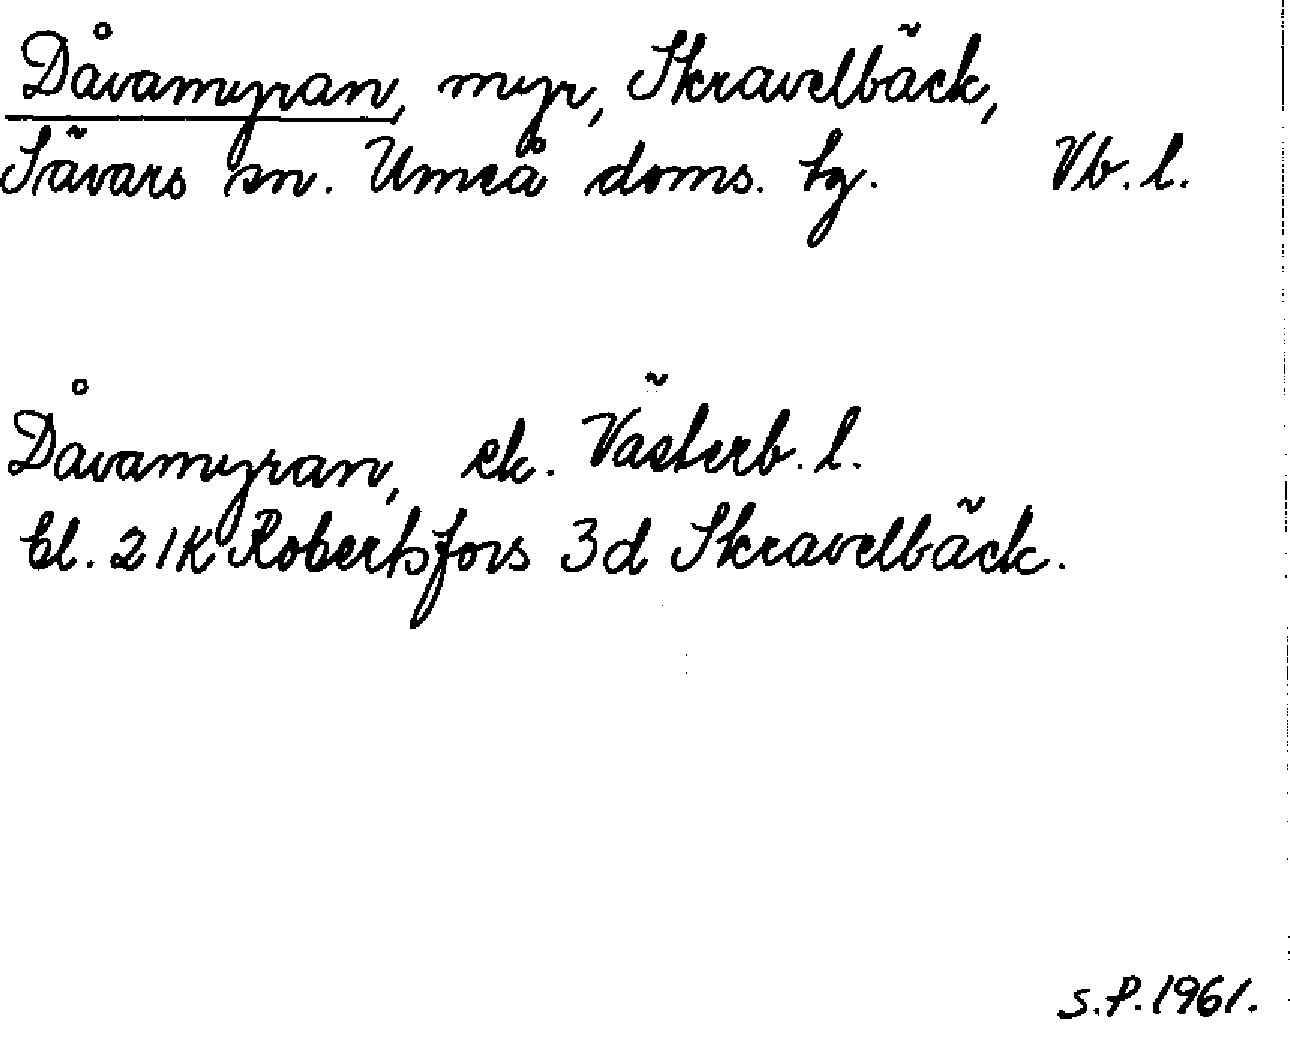 Dåvamyran, myr, Skravelbäck,
Sävars sn. Umeå doms. tg. Vb. l.
Dåvamyran, ek. Västerb. l.
bl. 21K Robertsfors 3d Skravelbäck.
S.P. 1961.